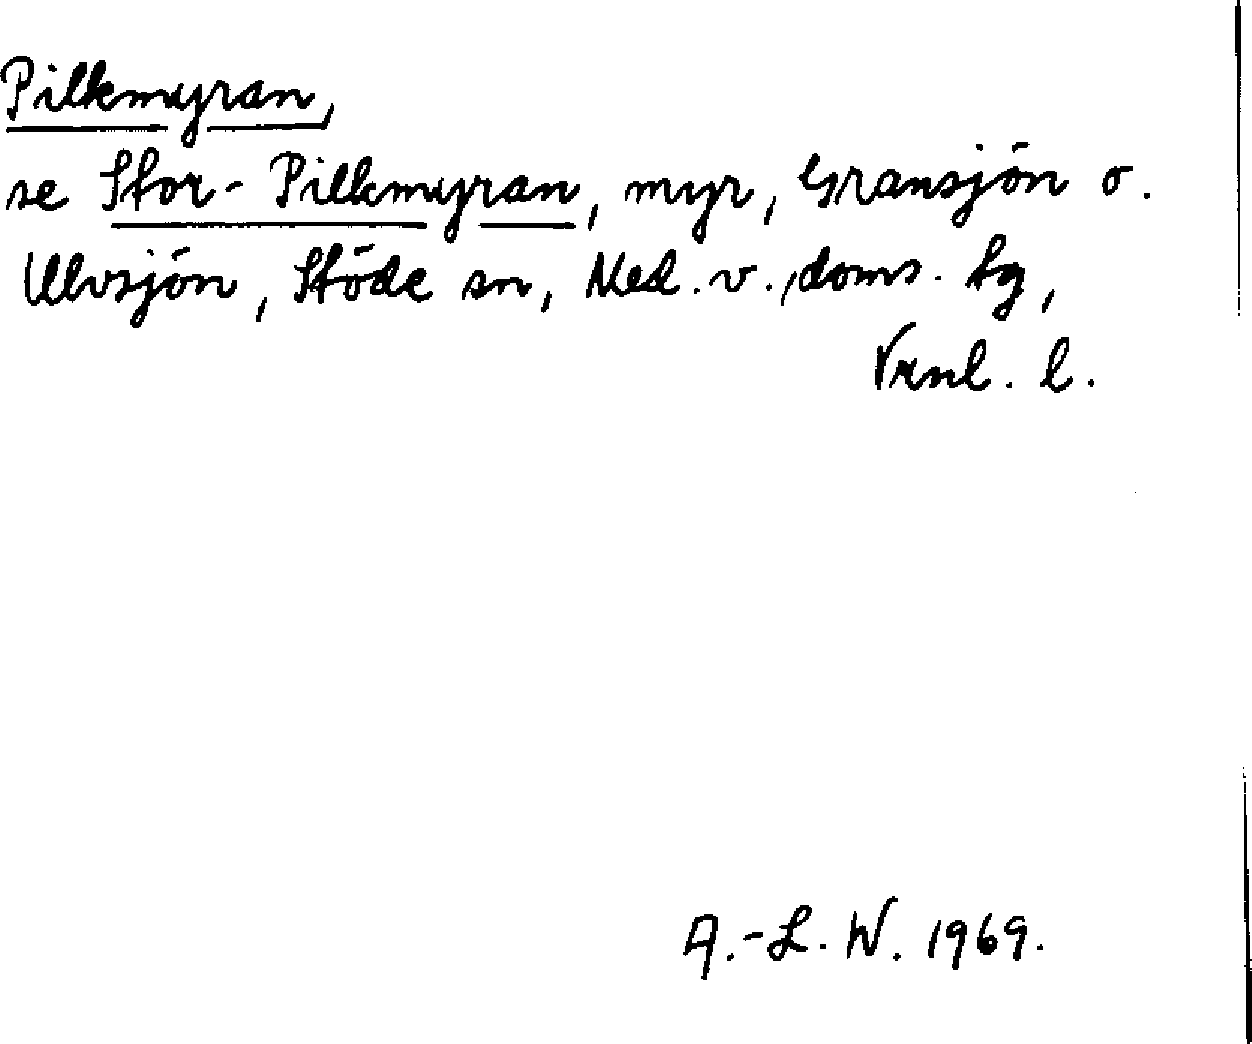 Pilkmyran,
se Stor-Pilkmyran, myr, Gransjön o.
Ulvsjön, Stöde sn, Med. v., doms. tg,
Vrnl. l.
A.-L. W. 1969.